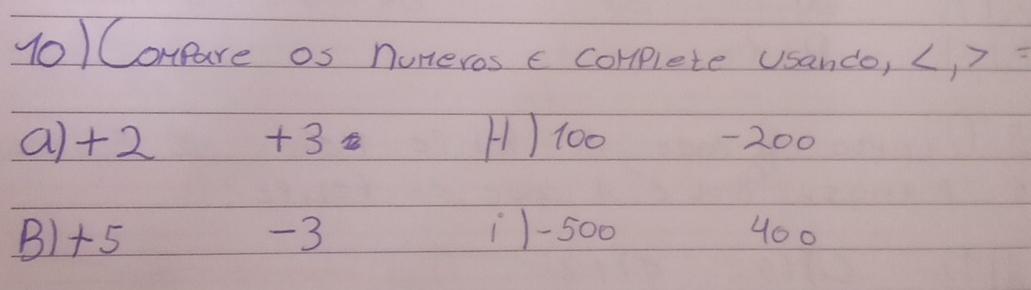 10) Compare os numeros e complete usando, <, > =
a) +2 +3 H) 100 -200
B) +5 -3 i) -500 400